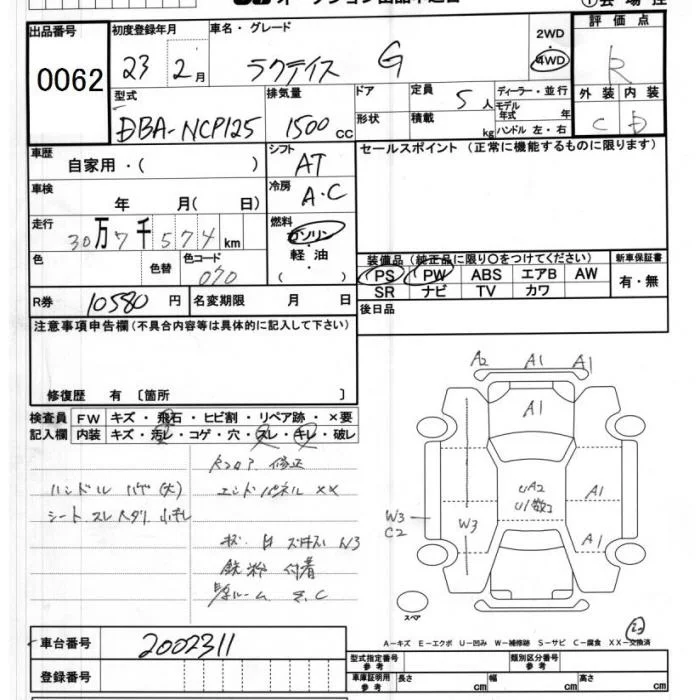 出品番号
0062
初度登録年月
23 2月
車名・グレード
ラクティス G
2WD
4WD
評価点
R
外装 内装
C D
型式
DBA-NCP125
排気量
1500 cc
ドア
形状
定員
5人
積載
kg
ディーラー・並行
モデル年式 年
ハンドル 左・右
車歴
自家用・( )
シフト
AT
セールスポイント (正常に機能するものに限ります)
車検
年 月( 日)
冷房
A・C
走行
30万7千574km
燃料
ガソリン
軽油
( )
色
色替
色コード
070
装備品 (純正品に限り○をつけてください)
PS PW ABS エアB AW
SR ナビ TV カワ
新車保証書
有・無
R券 10580円
名変期限 月 日
後日品
注意事項申告欄(不具合内容等は具体的に記入して下さい)
修復歴 有 〔箇所 〕
検査員記入欄
FW キズ・飛石・ヒビ割・リペア跡・×要
内装 キズ・汚レ・コゲ・穴・スレ・キレ・破レ
修正
ハンドル ハゲ(大)
エンドパネル ××
シート スレ ヘタリ
W3
鉄粉 付着
A2 A1 A1
A1
UA2
U1数コ
A1
W3
C2
W3
A1
スペア
A-キズ E-エクボ U-凹み W-補修跡 S-サビ C-腐食 XX-交換済
車台番号
2002311
登録番号
型式指定番号
参考
類別区分番号
参考
車庫証明用
参考
長さ cm
幅 cm
高さ cm